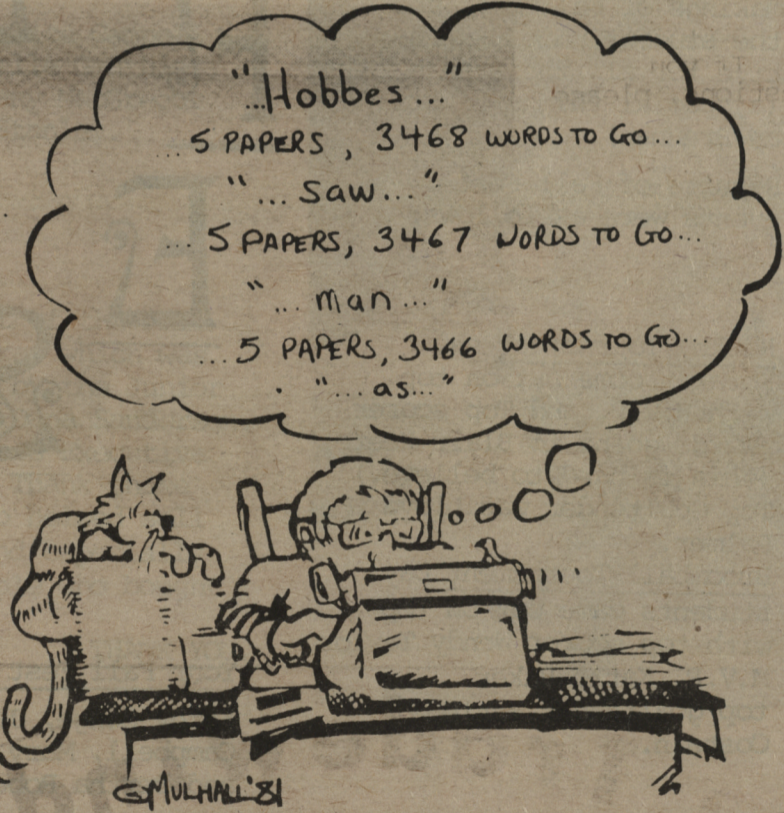 "...Hobbes..."
...5 PAPERS, 3468 WORDS TO GO...
"... saw..."
...5 PAPERS, 3467 WORDS TO GO...
"... man..."
...5 PAPERS, 3466 WORDS TO GO...
"... as..."
G MULHALL '81